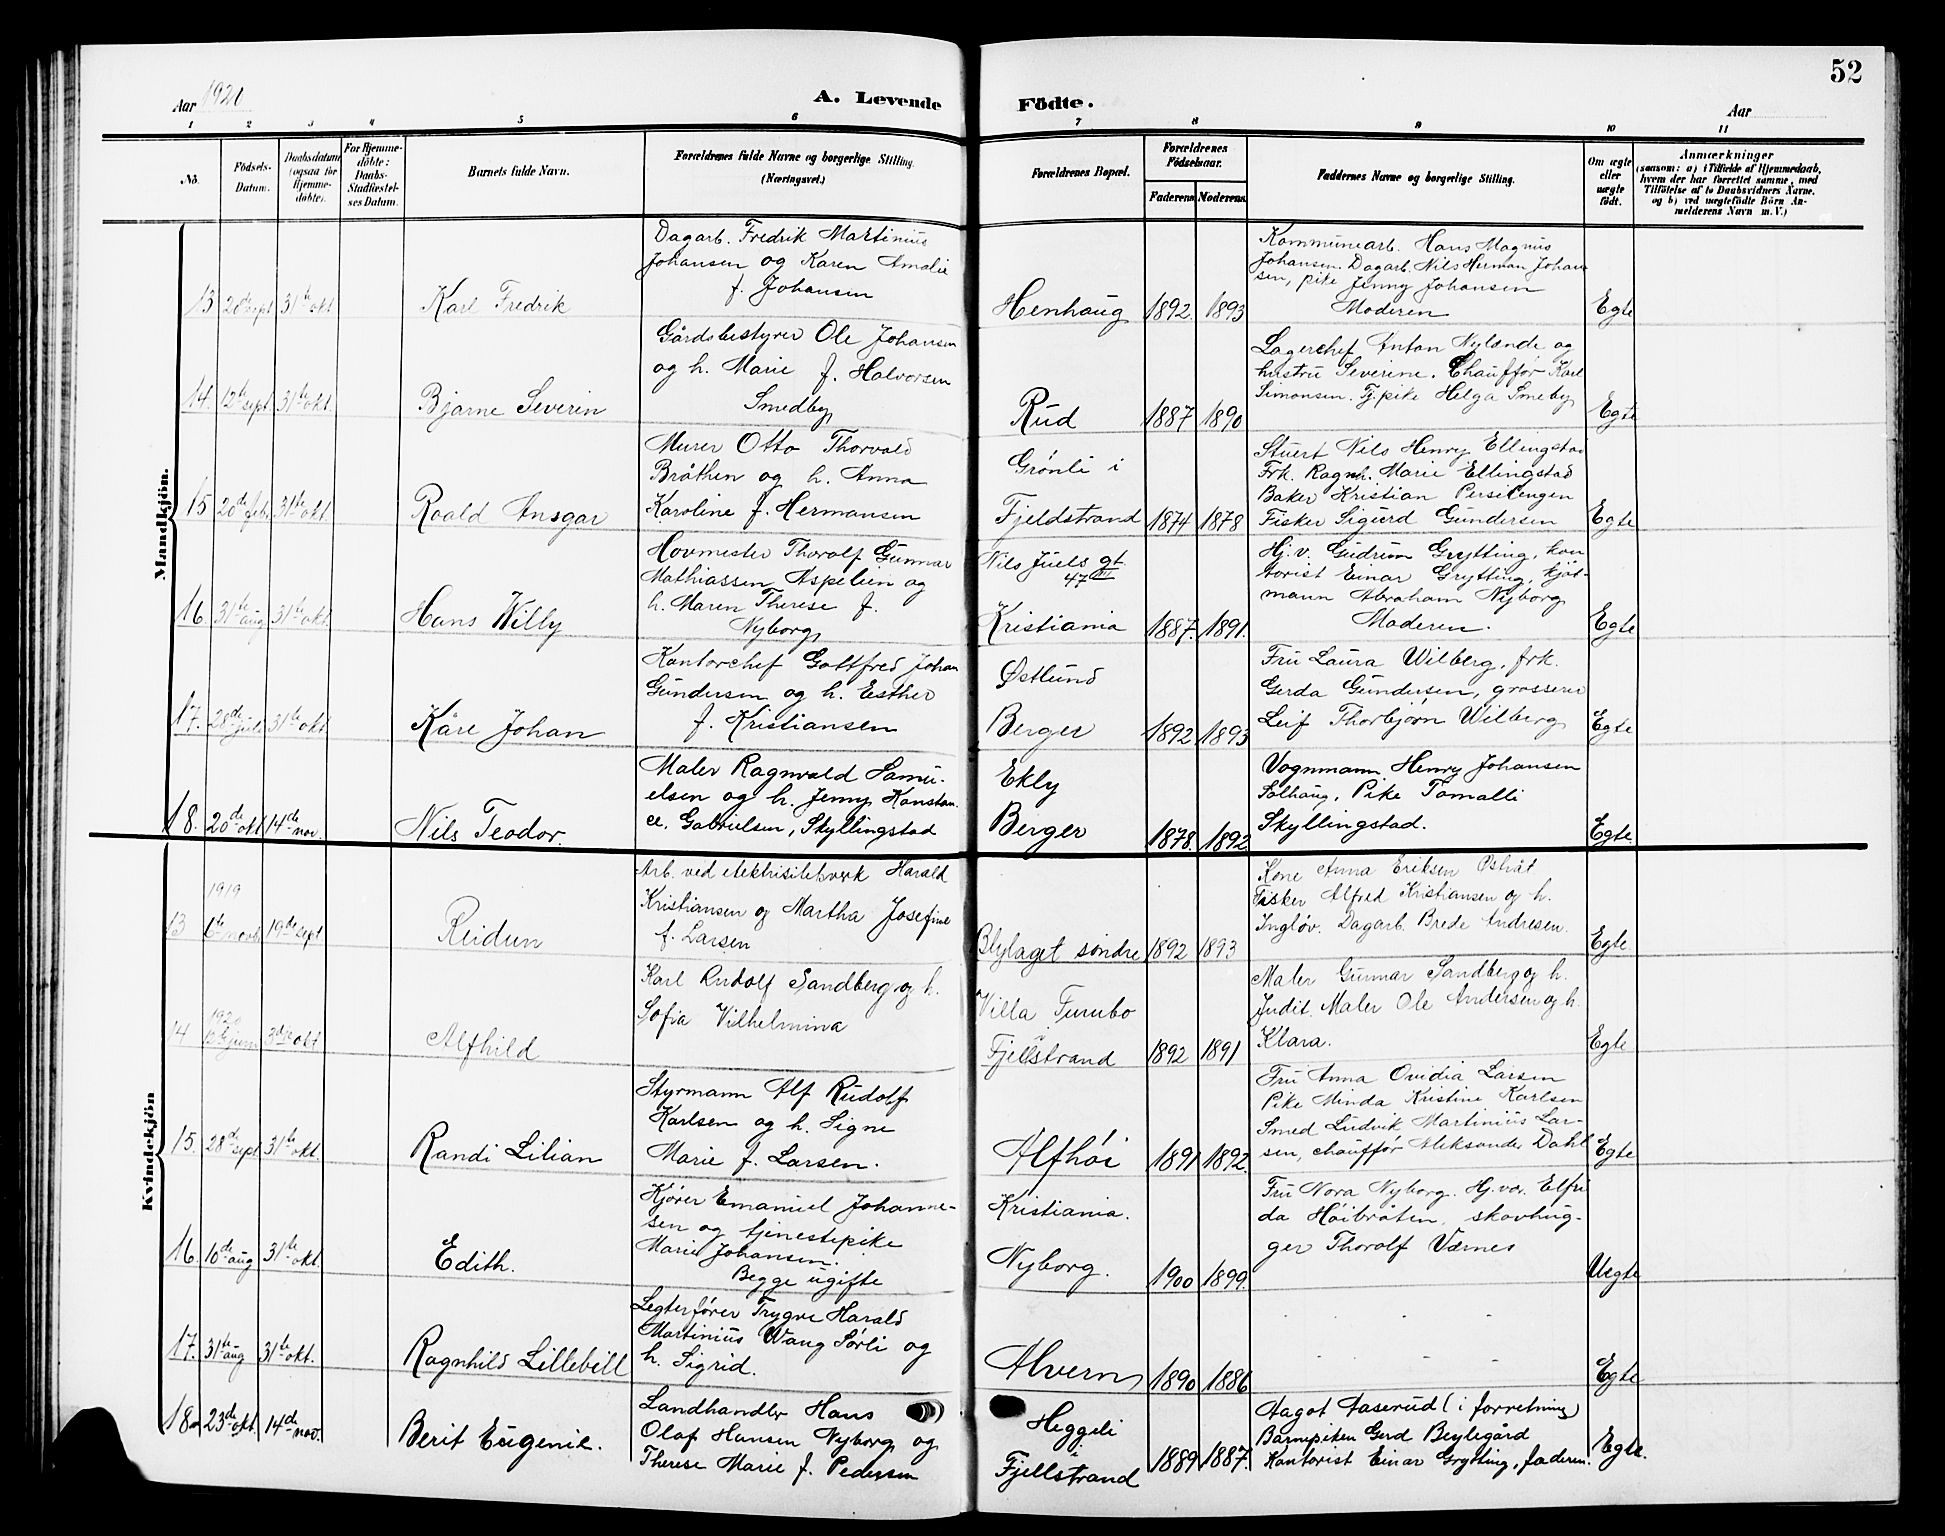 52
Aar 1920
A. Levende Födte.
Aar
1 2 3 4 5 6 7 8 9 10 11
No.
Födsels-Datum.
Daabsdatum (ogsaa for Hjemme-döbte).
For Hjemme-döbte: Daabs-Stadfæstel-ses Datum.
Barnets fulde Navn.
Forældrenes fulde Navne og borgerlige Stilling. (Næringsvei.)
Forældrenes Bopæl.
Forældrenes Födselsaar.
Faderens Moderens
Faddernes Navne og borgerlige Stilling.
Om ægte eller uægte födt.
Anmærkninger
(saasom: a) i Tilfælde af Hjemmedaab, hvem der har forrettet samme, med Tilföielse af to Daabsvidners Navne, og b) ved uægtefödte Börn An-melderens Navn m. V.)
Mandkjön.
Dagarb. Fredrik Martinius
Johansen og Karen Amalie
f. Johansen
13 20de sept 31te okt Karl Fredrik
Henhaug 1892. 1893
Kommunearb. Hans Magnus
Johansen. Dagarb. Nils Herman Johan
sen, pike Jenny Johansen
Moderen
Egte
Gårdsbestyrer Ole Johansen
og h. Marie f. Halvorsen
Smedby
14. 12te sept 31te okt. Bjarne Severin
Rud 1887 1890
Lagerchef Anton Nylænde og
hustru Severine. Chauffør Karl
Simonsen. Tj.pike Helga Smeby
Egte
Murer Otto Thorvald
Bråthen og h. Anna
Karoline f. Hermansen
15 20de feb. 31te okt. Roald Ansgar
Grønli i
Fjeldstrand 1874 1878
Stuert Nils Henry Ellingstad
Frk. Ragnh. Marie Ellingstad
Baker Kristian Persetengen
Fisker Sigurd Gundersen
Egte
Hovmester Thorolf Gunnar
Mathiassen Aspelien og
h. Maren Therese f.
Nyborg
16. 31te aug 31te okt. Hans Willy
Nils Juels gt.
47 III
Kristiania 1887. 1891.
Hj. v. Gudrun Grytting, kon
torist Einar Grytting, kjøt-
mann Abraham Nyborg
Moderen.
Egte
Kontorchef Gottfred Johan
Gundersen og h. Esther
f. Kristiansen
17. 28de juli 31te okt. Kåre Johan
Østlund
Berger 1892 1893
Fru Laura Wilberg, frk.
Gerda Gundersen, grosserer
Leif Thorbjørn Wilberg
Egte
Maler Ragnvald Samu-
elsen og h. Jenny Konstan
ce. Gabrielsen, Skyllingstad
18. 20de okt 14de nov. Nils Teodor.
Ekly
Berger 1878. 1892
Vognmann Henry Johansen
Solhaug, Pike Tomalli
Skyllingstad.
Egte
Kvindekjön
Arb. ved elektrisitetsverk Harald
Kristiansen og Martha Josefine
f. Larsen
1919
13 6te novb. 19de sept Reidun
Blylaget søndre 1892 1893
Kone Anna Eriksen Østråt
Fisker Alfred Kristiansen og h.
Ingløv. Dagarb. Brede Andresen.
Egte
Karl Rudolf Sandberg og h.
Sofia Vilhelmina
1920
14 juni 3die okt Alfhild
Villa Furubo
i
Fjellstrand 1892 1891
Maler Gunnar Sandberg og h.
Judit. Maler Ole Andersen og h.
Klara.
Egte
Styrmann Alf Rudolf
Karlsen og h. Signe
Marie f. Larsen.
15. 28de sept 31te okt. Randi Lilian
Alfhøi 1891 1892.
Fru Anna Ovidia Larsen
Pike Minda Kristine Karlsen
Smed Ludvik Martinius Lar-
sen, chauffør Aleksander Dahl
Egte
Kjører Emanuel Johanne-
sen og tjenestepike
Marie Johansen.
Begge ugifte
16. 10de aug 31te okt. Edith.
Kristiania.
Nyborg. 1900 1899.
Fru Nora Nyborg. Hj.vær. Elfri
da Høibråten, skovhug-
ger Thorolf Værnes
Uegte
Legterfører Trygve Harald
Martinius Wang Sørli og
h. Sigrid.
17. 31te aug 31te okt. Ragnhild Lillebill
Alvern 1890 1886
Egte
Landhandler Hans
Olaf Hansen Nyborg og
Therese Marie f. Pedersen
18. 23de okt. 14de nov. Berit Eugenie.
Heggeli
i
Fjellstrand 1889 1887.
Aagot Aaserud (i forretning)
Barnepiken Gerd Beylegård
Kontorist Einar Grytting, faderen.
Egte.